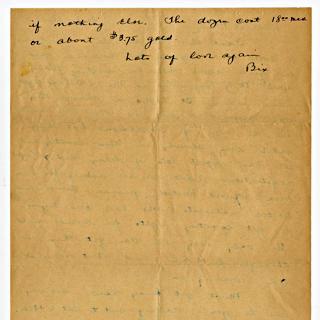 if nothing else. The dozen cost 18⁰⁰ mex
or about $3.75 gold.
Lots of love again
Bix